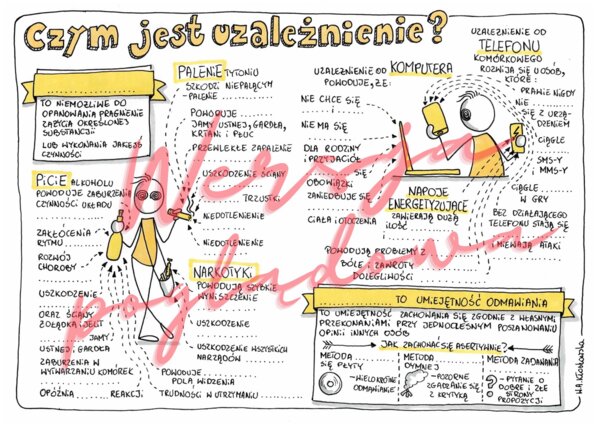 Czym jest uzależnienie?
TO NIEMOŻLIWE DO
OPANOWANIA PRAGNIENIE
ZAŻYCIA OKREŚLONEJ
SUBSTANCJI
LUB WYKONANIA JAKIEJŚ
CZYNNOŚCI
PALENIE TYTONIU
SZKODZI NIEPALĄCYM
- PALENIE
POWODUJE
JAMY USTNEJ, GARDŁA,
KRTANI I PŁUC
PRZEWLEKŁE ZAPALENIE
USZKODZENIE ŚCIANY
TRZUSTKI
NIEDOTLENIENIE
NIEDOTLENIENIE
PICIE ALKOHOLU
POWODUJE ZABURZENIE
CZYNNOŚCI UKŁADU
ZAKŁÓCENIA
RYTMU
ROZWÓJ
CHOROBY
USZKODZENIE
ORAZ ŚCIANY
ŻOŁĄDKA I JELIT
JAMY
USTNEJ, GARDŁA
ZABURZENIA W
WYTWARZANIU KOMÓREK
OPÓŹNIA REAKCJI
NARKOTYKI
POWODUJĄ SZYBKIE
WYNISZCZENIE
USZKODZENIE
USZKODZENIE WSZYSTKICH
NARZĄDÓW
POWODUJE
POLA WIDZENIA
TRUDNOŚCI W UTRZYMANIU
UZALEŻNIENIE OD KOMPUTERA
POWODUJE, ŻE:
NIE CHCE SIĘ
I
NIE MA SIĘ
DLA RODZINY
I PRZYJACIÓŁ
OBOWIĄZKI
ZANIEDBUJE SIĘ
CIAŁA I OTOCZENIA
UZALEŻNIENIE OD
TELEFONU
KOMÓRKOWEGO
ROZWIJA SIĘ U OSÓB,
KTÓRE:
PRAWIE NIGDY
NIE
SIĘ Z URZĄ-
DZENIEM
CIĄGLE
SMS-Y
MMS-Y
CIĄGLE
W GRY
BEZ DZIAŁAJĄCEGO
TELEFONU STAJĄ SIĘ
I MIEWAJĄ ATAKI
NAPOJE
ENERGETYZUJĄCE
ZAWIERAJĄ DUŻĄ
ILOŚĆ
POWODUJĄ PROBLEMY Z
BÓLE I ZAWROTY
DOLEGLIWOŚCI
TO UMIEJĘTNOŚĆ ODMAWIANIA
TO UMIEJĘTNOŚĆ ZACHOWANIA SIĘ ZGODNIE Z WŁASNYMI
PRZEKONANIAMI PRZY JEDNOCZESNYM POSZANOWANIU
OPINII INNYCH OSÓB
JAK ZACHOWAĆ SIĘ ASERTYWNIE?
METODA
ZDARTEJ
PŁYTY
- WIELOKROTNE
ODMAWIANIE
METODA
ZASŁONY
DYMNEJ
- POZORNE
ZGADZANIE SIĘ
Z KRYTYKĄ
METODA ZADAWANIA
- PYTANIE O
DOBRE I ZŁE
STRONY
PROPOZYCJI
Wersja
poglądowa